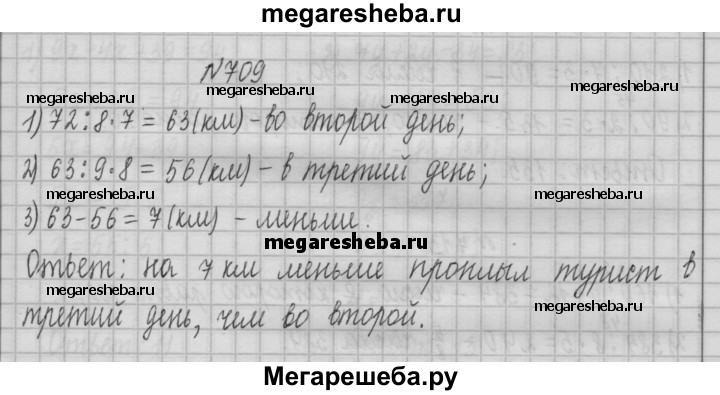 megaresheba.ru
N709
megaresheba.ru megaresheba.ru megaresheba.ru
1) 72:8·7=63(км)-во второй день;
2) 63:9·8=56(км)-в третий день;
megaresheba.ru megaresheba.ru
3) 63-56=7(км) - меньше.
megaresheba.ru
Ответ: на 7 км меньше проплыл турист в
megaresheba.ru megaresheba.ru
третий день, чем во второй.
Мегарешеба.ру